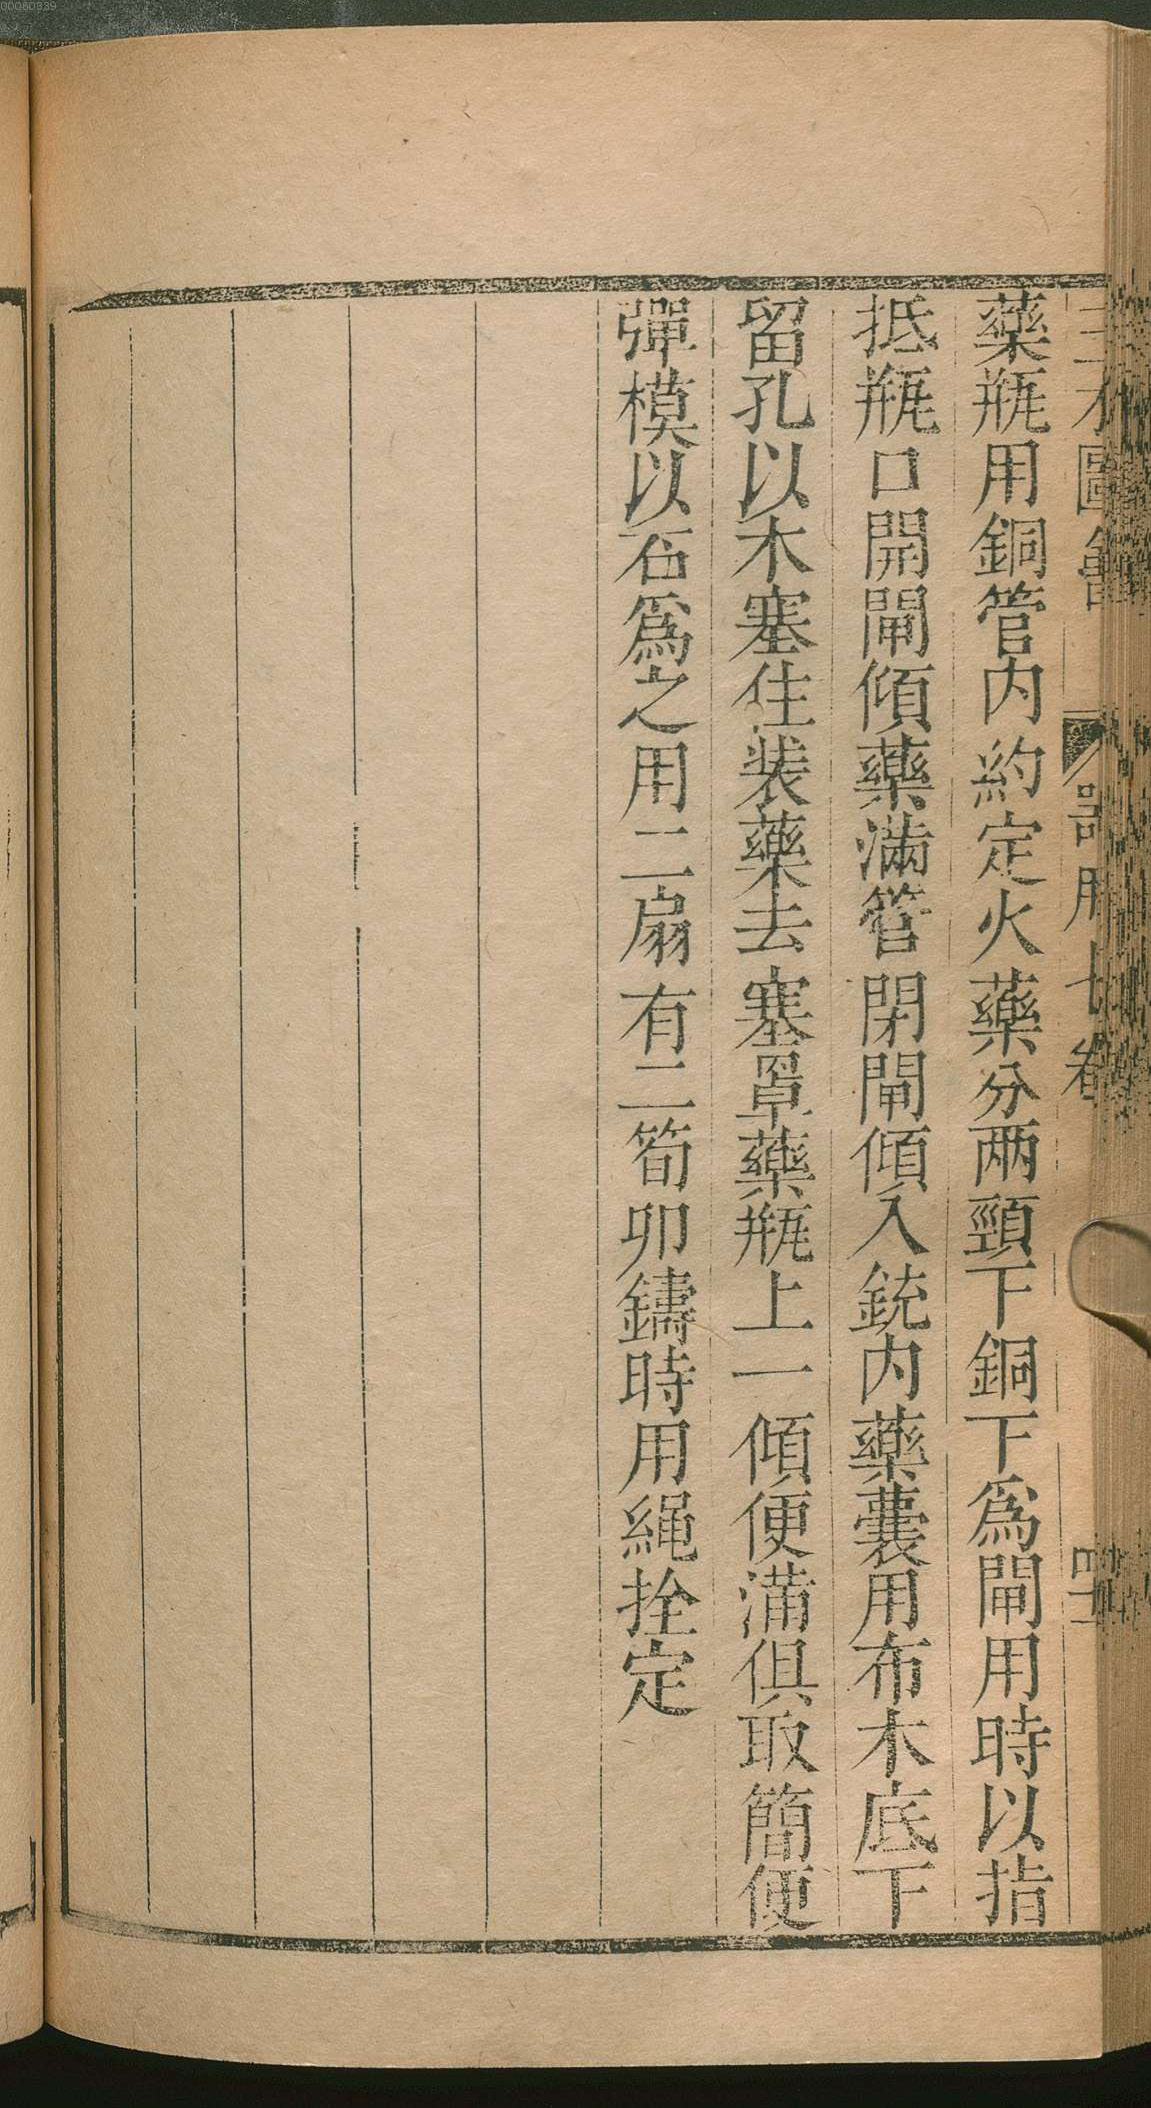 三才圖會 器用七卷 四十
藥瓶用銅管内約定火藥分两頸下銅下爲閘用時以指
抵瓶口開閘傾藥滿管閉閘傾入銃内藥囊用布木底下
留孔以木塞住装藥去塞罩藥瓶上一傾便滿俱取簡便
彈模以石爲之用二扇有二筍卯鑄時用繩拴定
00060339